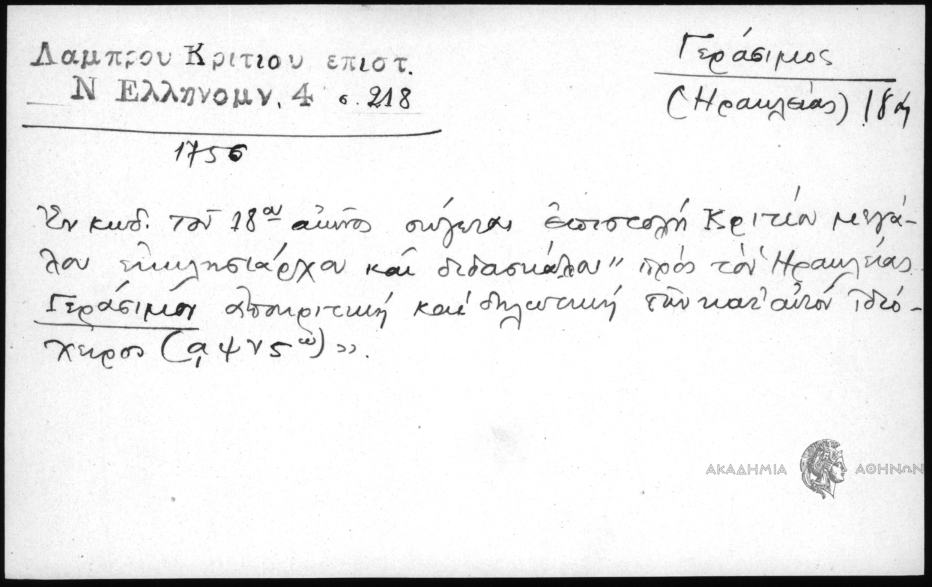 Λαμπρου Κριτιου επιστ.
Ν Ελληνομν. 4 σ. 218
Γεράσιμος
(Ηρακλείας) 18 αἰ
1756
Ἐν κώδ. τοῦ 18ου αἰῶνος σώζεται ἐπιστολή Κριτίου μεγά-
λου ἐκκλησιάρχου καί διδασκάλου "πρός τόν Ἡρακλείας
Γεράσιμον ἀποκριτική καί δηλωτική τῶν κατ' αὐτόν ἰδιό-
χειρος (͵αψνς ῳ) ».
ΑΚΑΔΗΜΙΑ ΑΘΗΝΩΝ